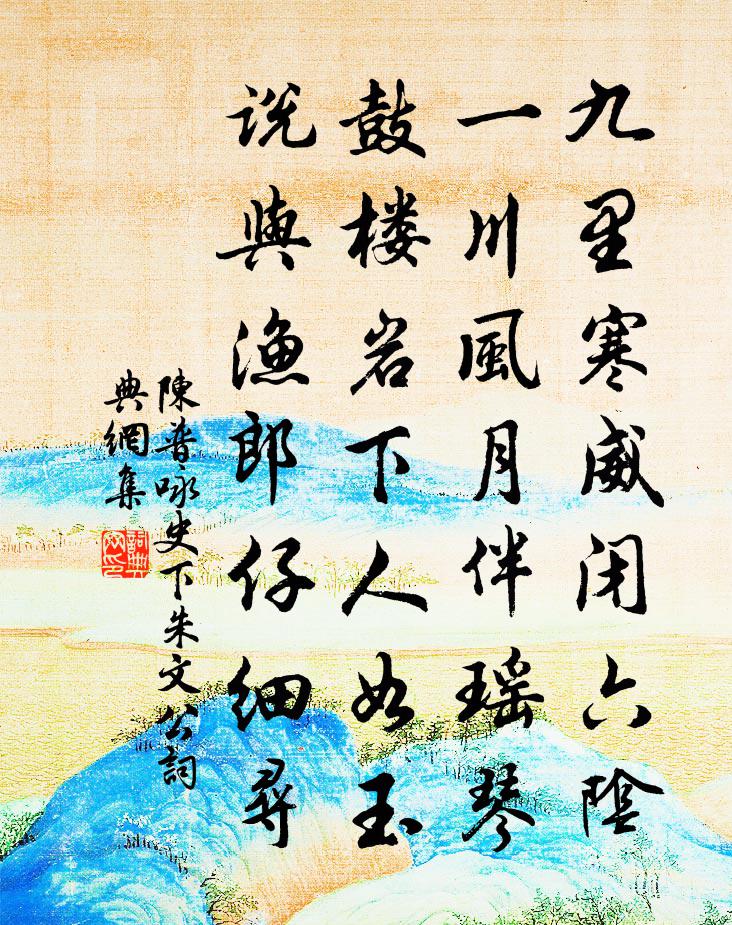 九里寒威闭六陰
一川風月伴瑶琴
鼓楼岩下人如玉
说與漁郎仔细尋
陳普咏史下朱文公詞
典網集
詞典網印